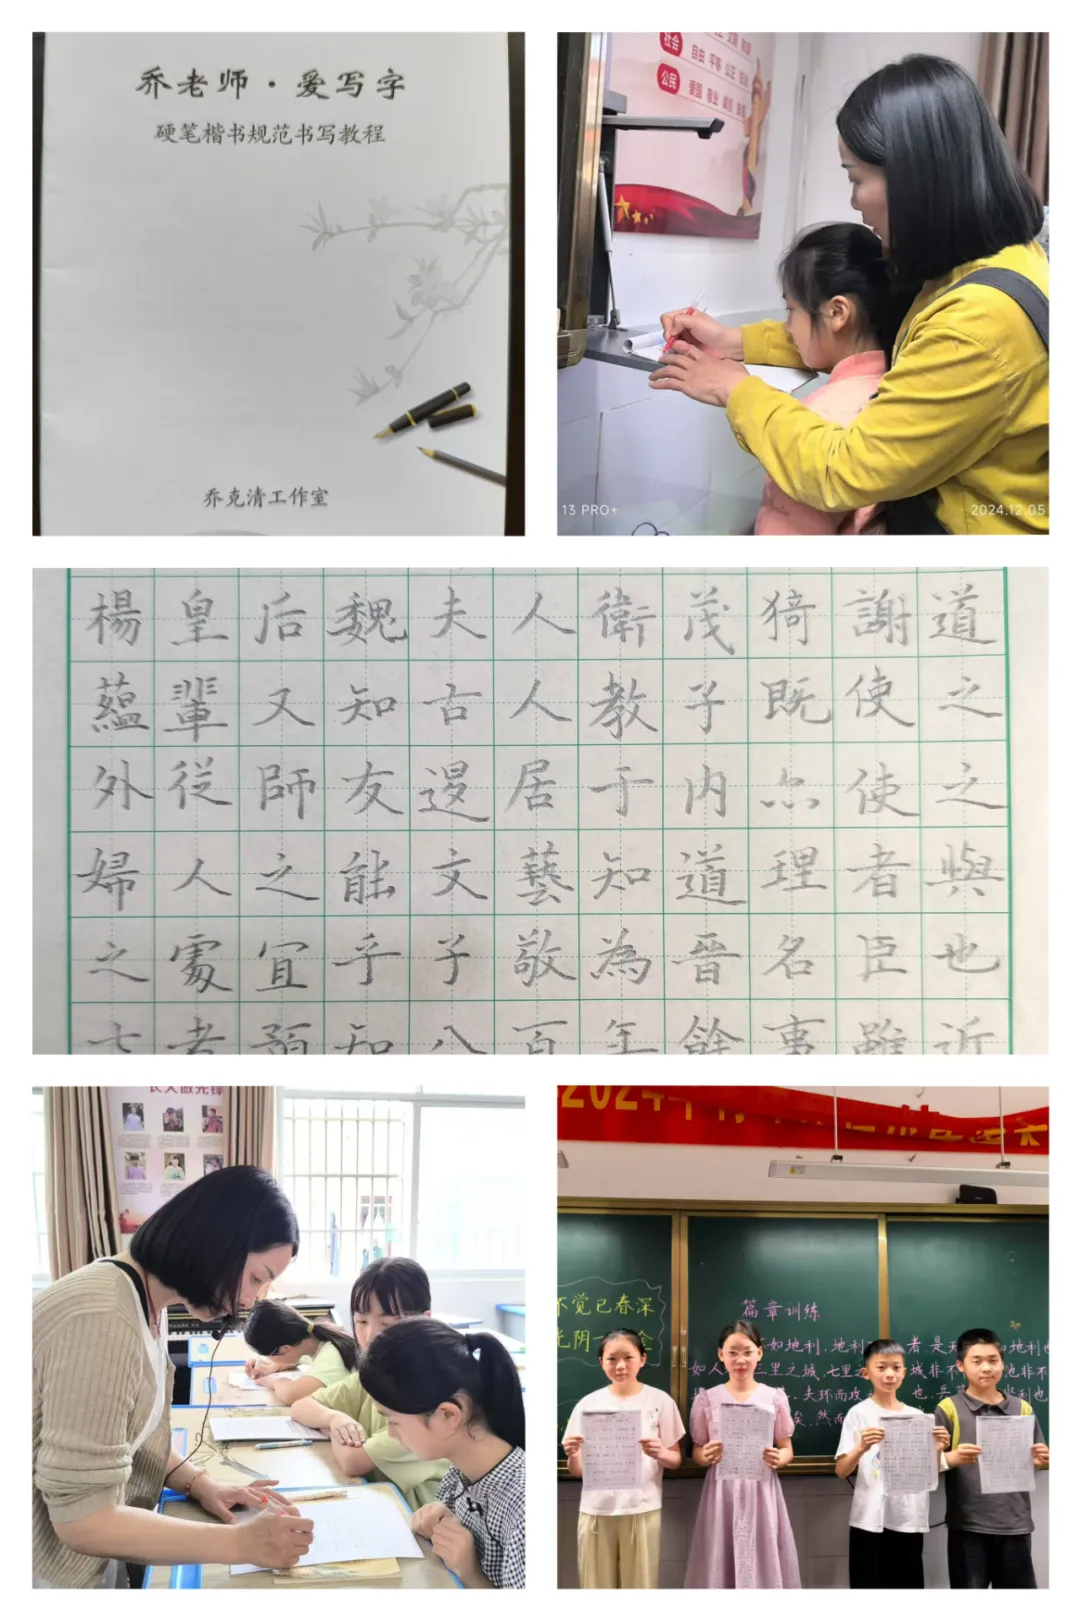 乔老师·爱写字
硬笔楷书规范书写教程
乔克清工作室
社会
自由 平等 公正
公民
爱国 敬业 诚信
13 PRO+
2024.12.05
楊皇后魏夫人衛茂猗謝道
蘊輩又知古人教子既使之
外從師友居于内亦使之
婦人之能文藝知道理者與
之處宜乎子敬為晉名臣也
知八百年餘事雖近
2024年
不觉已春深
光阴一金
篇章训练
如地利,地利者是地利也
如人三里之城,七里之城非不池非不
夫环而攻也,兵坚利也
矣,然而